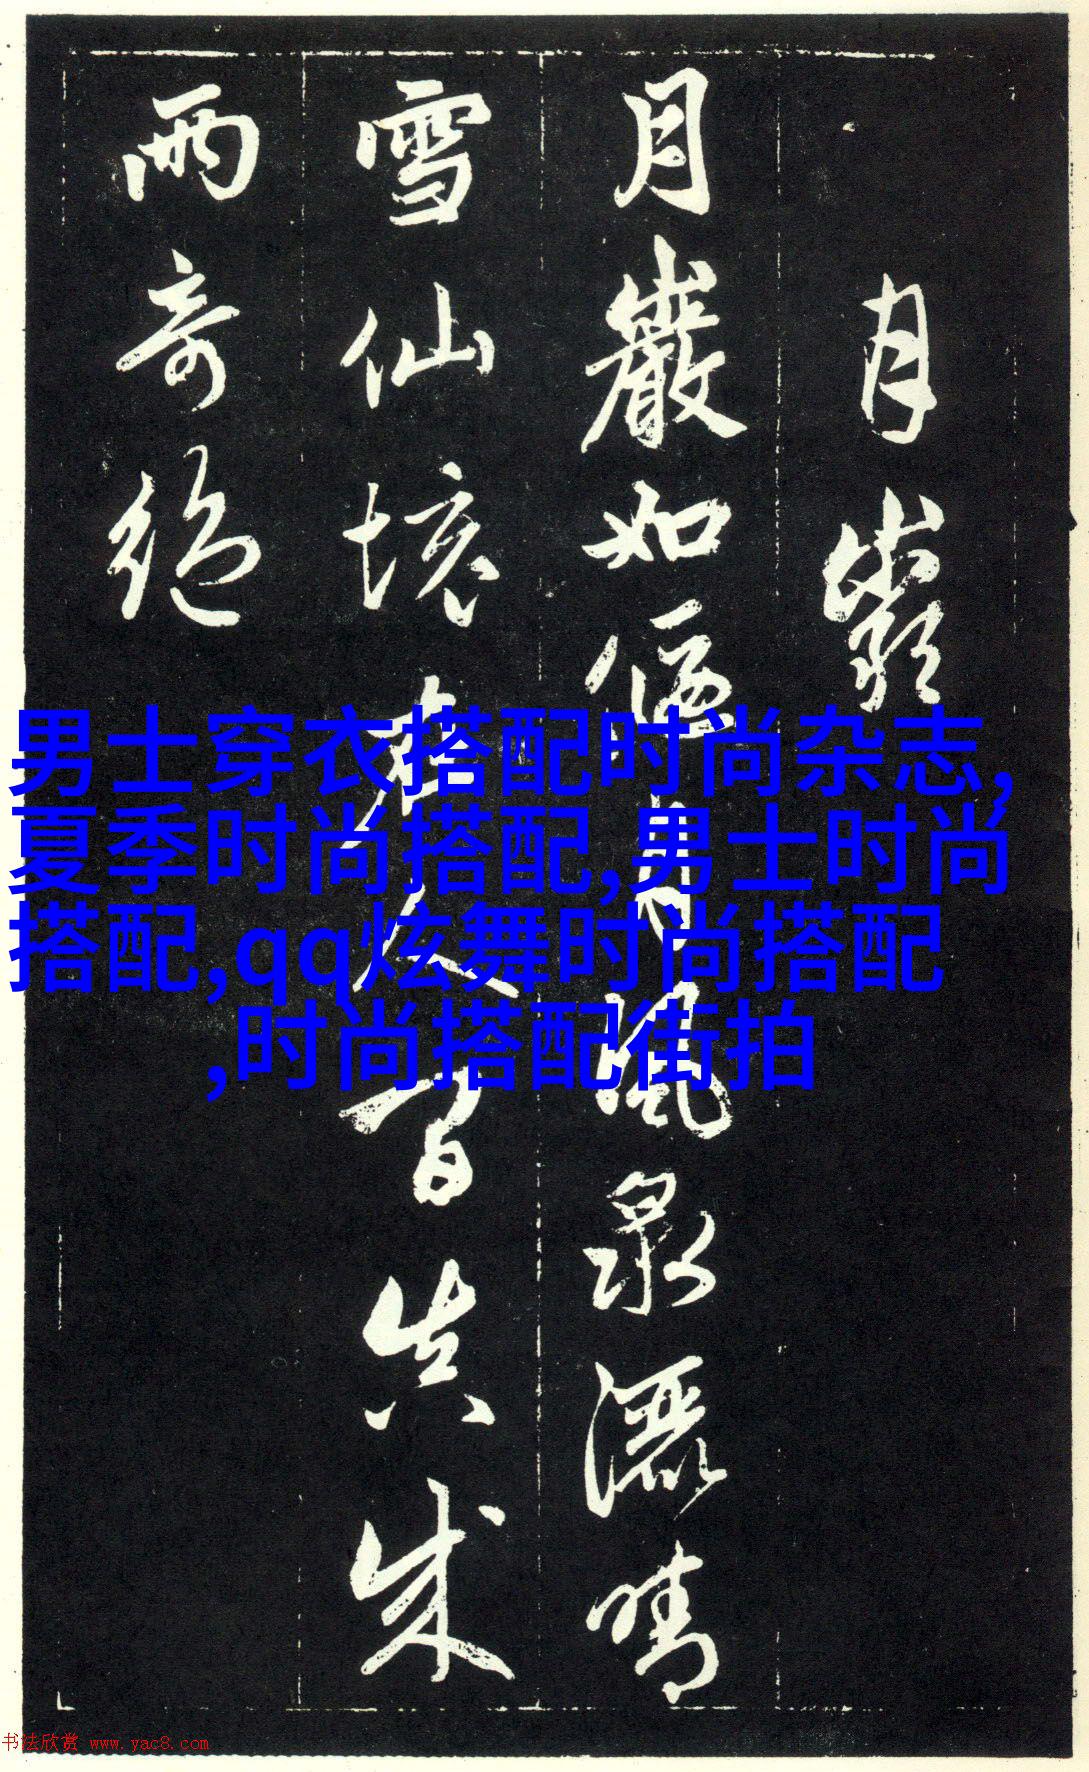 月巖
月巖如偃月風泉灑晴
雪仙境在人間真成
兩奇絕
男士穿衣搭配时尚杂志,
夏季时尚搭配,男士时尚
搭配,qq炫舞时尚搭配
,时尚搭配街拍
书法欣赏 www.yac8.com